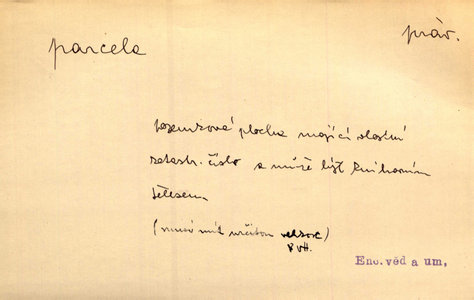 parcela
práv.
pozemková plocha mající vlastní
katastr. číslo a může být knihovním
tělesem
(musí mít určitou
Enc. věd a um.